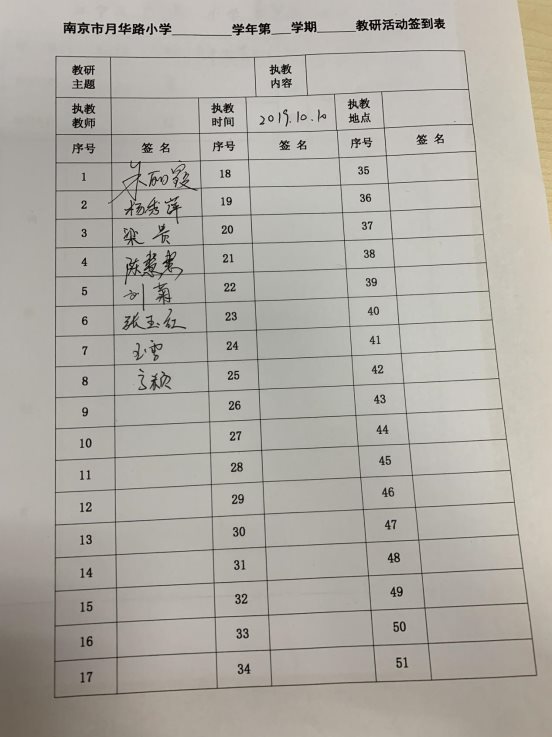 南京市月华路小学________学年第___学期______教研活动签到表
教研主题 执教内容
执教教师 执教时间 2019.10.10 执教地点
序号 签名 序号 签名 序号 签名
1 朱丽霞 18 35
2 杨秀萍 19 36
3 梁贵 20 37
4 陈慧慧 21 38
5 刘菊 22 39
6 张玉红 23 40
7 王雪 24 41
8 高颖 25 42
9 26 43
10 27 44
11 28 45
12 29 46
13 30 47
14 31 48
15 32 49
16 33 50
17 34 51